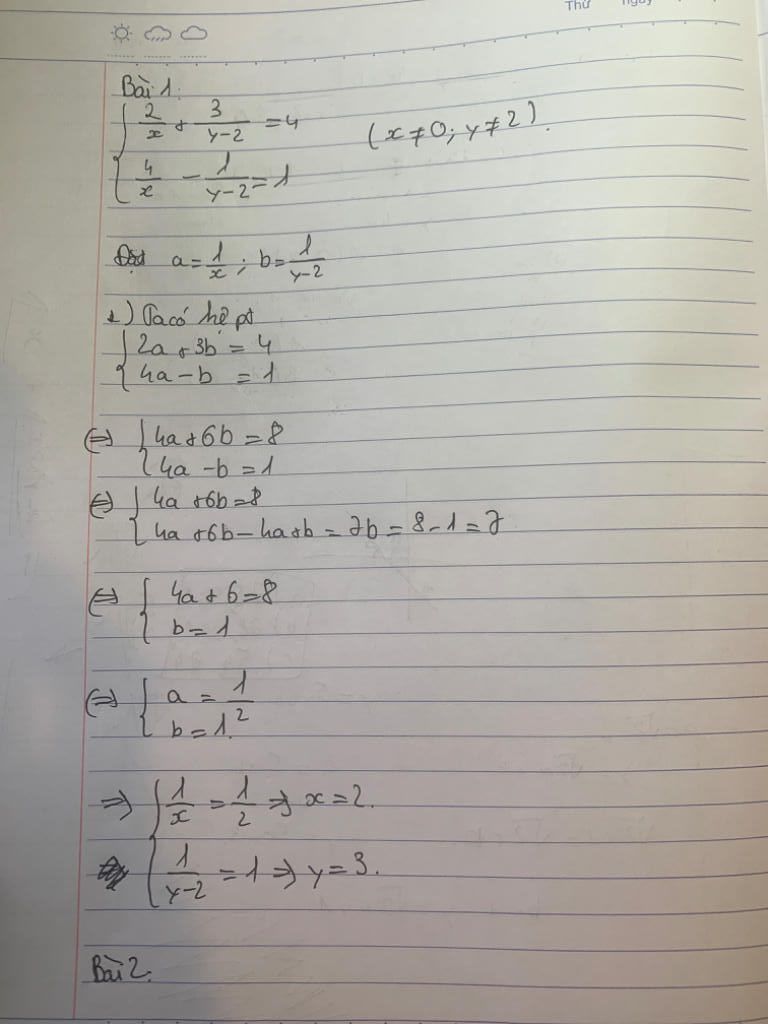 Thứ ngày
Bài 1:
{ 2/x + 3/(y-2) = 4 (x ≠ 0; y ≠ 2).
{ 4/x - 1/(y-2) = 1
Đặt a = 1/x ; b = 1/(y-2)
1) Ta có hệ pt
{ 2a + 3b = 4
{ 4a - b = 1
(=) { 4a + 6b = 8
{ 4a - b = 1
(=) { 4a + 6b = 8
{ 4a + 6b - 4a + b = 7b = 8 - 1 = 7
(=) { 4a + 6 = 8
{ b = 1
(=) { a = 1/2
{ b = 1.
=) { 1/x = 1/2 =) x = 2.
{ 1/(y-2) = 1 =) y = 3.
Bài 2: